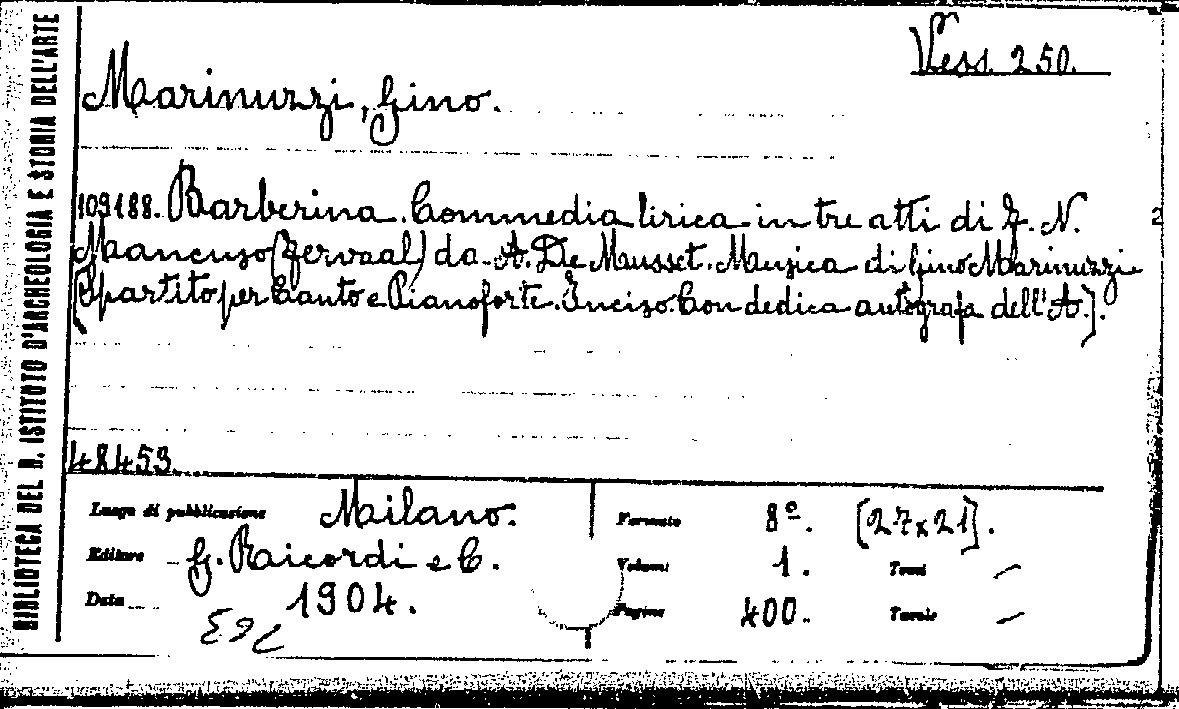 BIBLIOTECA DEL R. ISTITUTO D'ARCHEOLOGIA E STORIA DELL'ARTE
Vess. 250.
Marinuzzi, Gino.
109188. Barberina. Commedia lirica in tre atti di F. N.
Mancuso (Fervaal) da A. De Musset. Musica di Gino Marinuzzi
(Spartito per Canto e Pianoforte. Inciso. Con dedica autografa dell'A.).
48453.
Luogo di pubblicazione Milano.
Editore G. Ricordi e C.
Data 1904.
Formato 8º. (27x21).
Volumi 1. Tomi –
Pagine 400. Tavole –